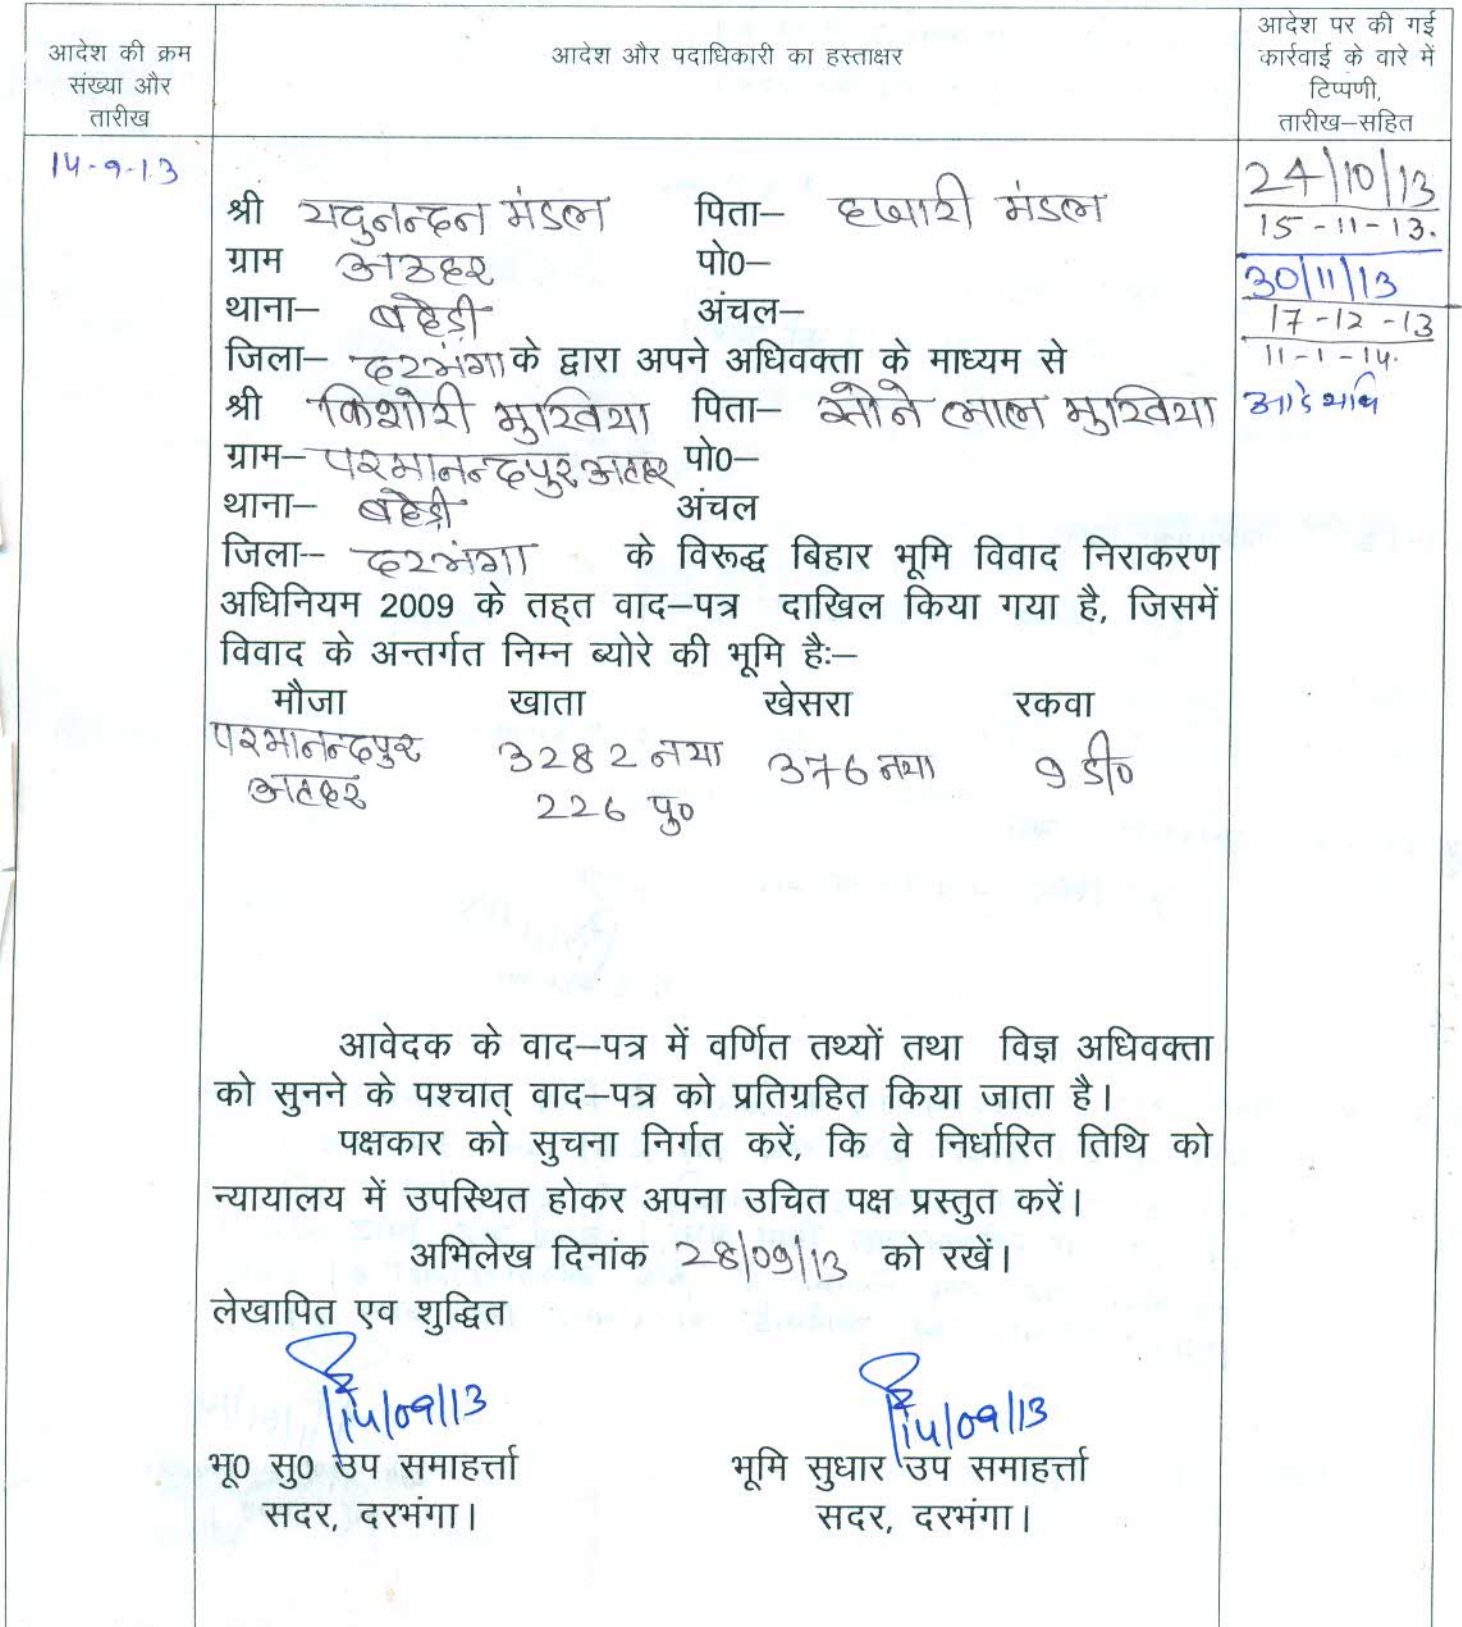 आदेश की क्रम
संख्या और
तारीख
आदेश और पदाधिकारी का हस्ताक्षर
आदेश पर की गई
कार्रवाई के वारे में
टिप्पणी,
तारीख–सहित
14-9-13
24/10/13
15-11-13.
30/11/13
17-12-13
11-1-14.
श्री यदुनन्दन मंडल पिता– हजारी मंडल
ग्राम अठहर पो0–
थाना– बहेड़ी अंचल–
जिला– दरभंगा के द्वारा अपने अधिवक्ता के माध्यम से
श्री किशोरी मुखिया पिता– सोने लाल मुखिया
ग्राम– परमानन्दपुर अठहर पो0–
थाना– बहेड़ी अंचल
जिला– दरभंगा के विरूद्ध बिहार भूमि विवाद निराकरण
अधिनियम 2009 के तह्त वाद–पत्र दाखिल किया गया है, जिसमें
विवाद के अन्तर्गत निम्न ब्योरे की भूमि हैः–
मौजा खाता खेसरा रकवा
परमानन्दपुर 3282 नया 376 नया 9 डी0
अठहर 226 पु0
आवेदक के वाद–पत्र में वर्णित तथ्यों तथा विज्ञ अधिवक्ता
को सुनने के पश्चात् वाद–पत्र को प्रतिग्रहित किया जाता है।
पक्षकार को सुचना निर्गत करें, कि वे निर्धारित तिथि को
न्यायालय में उपस्थित होकर अपना उचित पक्ष प्रस्तुत करें।
अभिलेख दिनांक 28/09/13 को रखें।
लेखापित एव शुद्धित
14/09/13 14/09/13
भू0 सु0 उप समाहर्त्ता भूमि सुधार उप समाहर्त्ता
सदर, दरभंगा। सदर, दरभंगा।